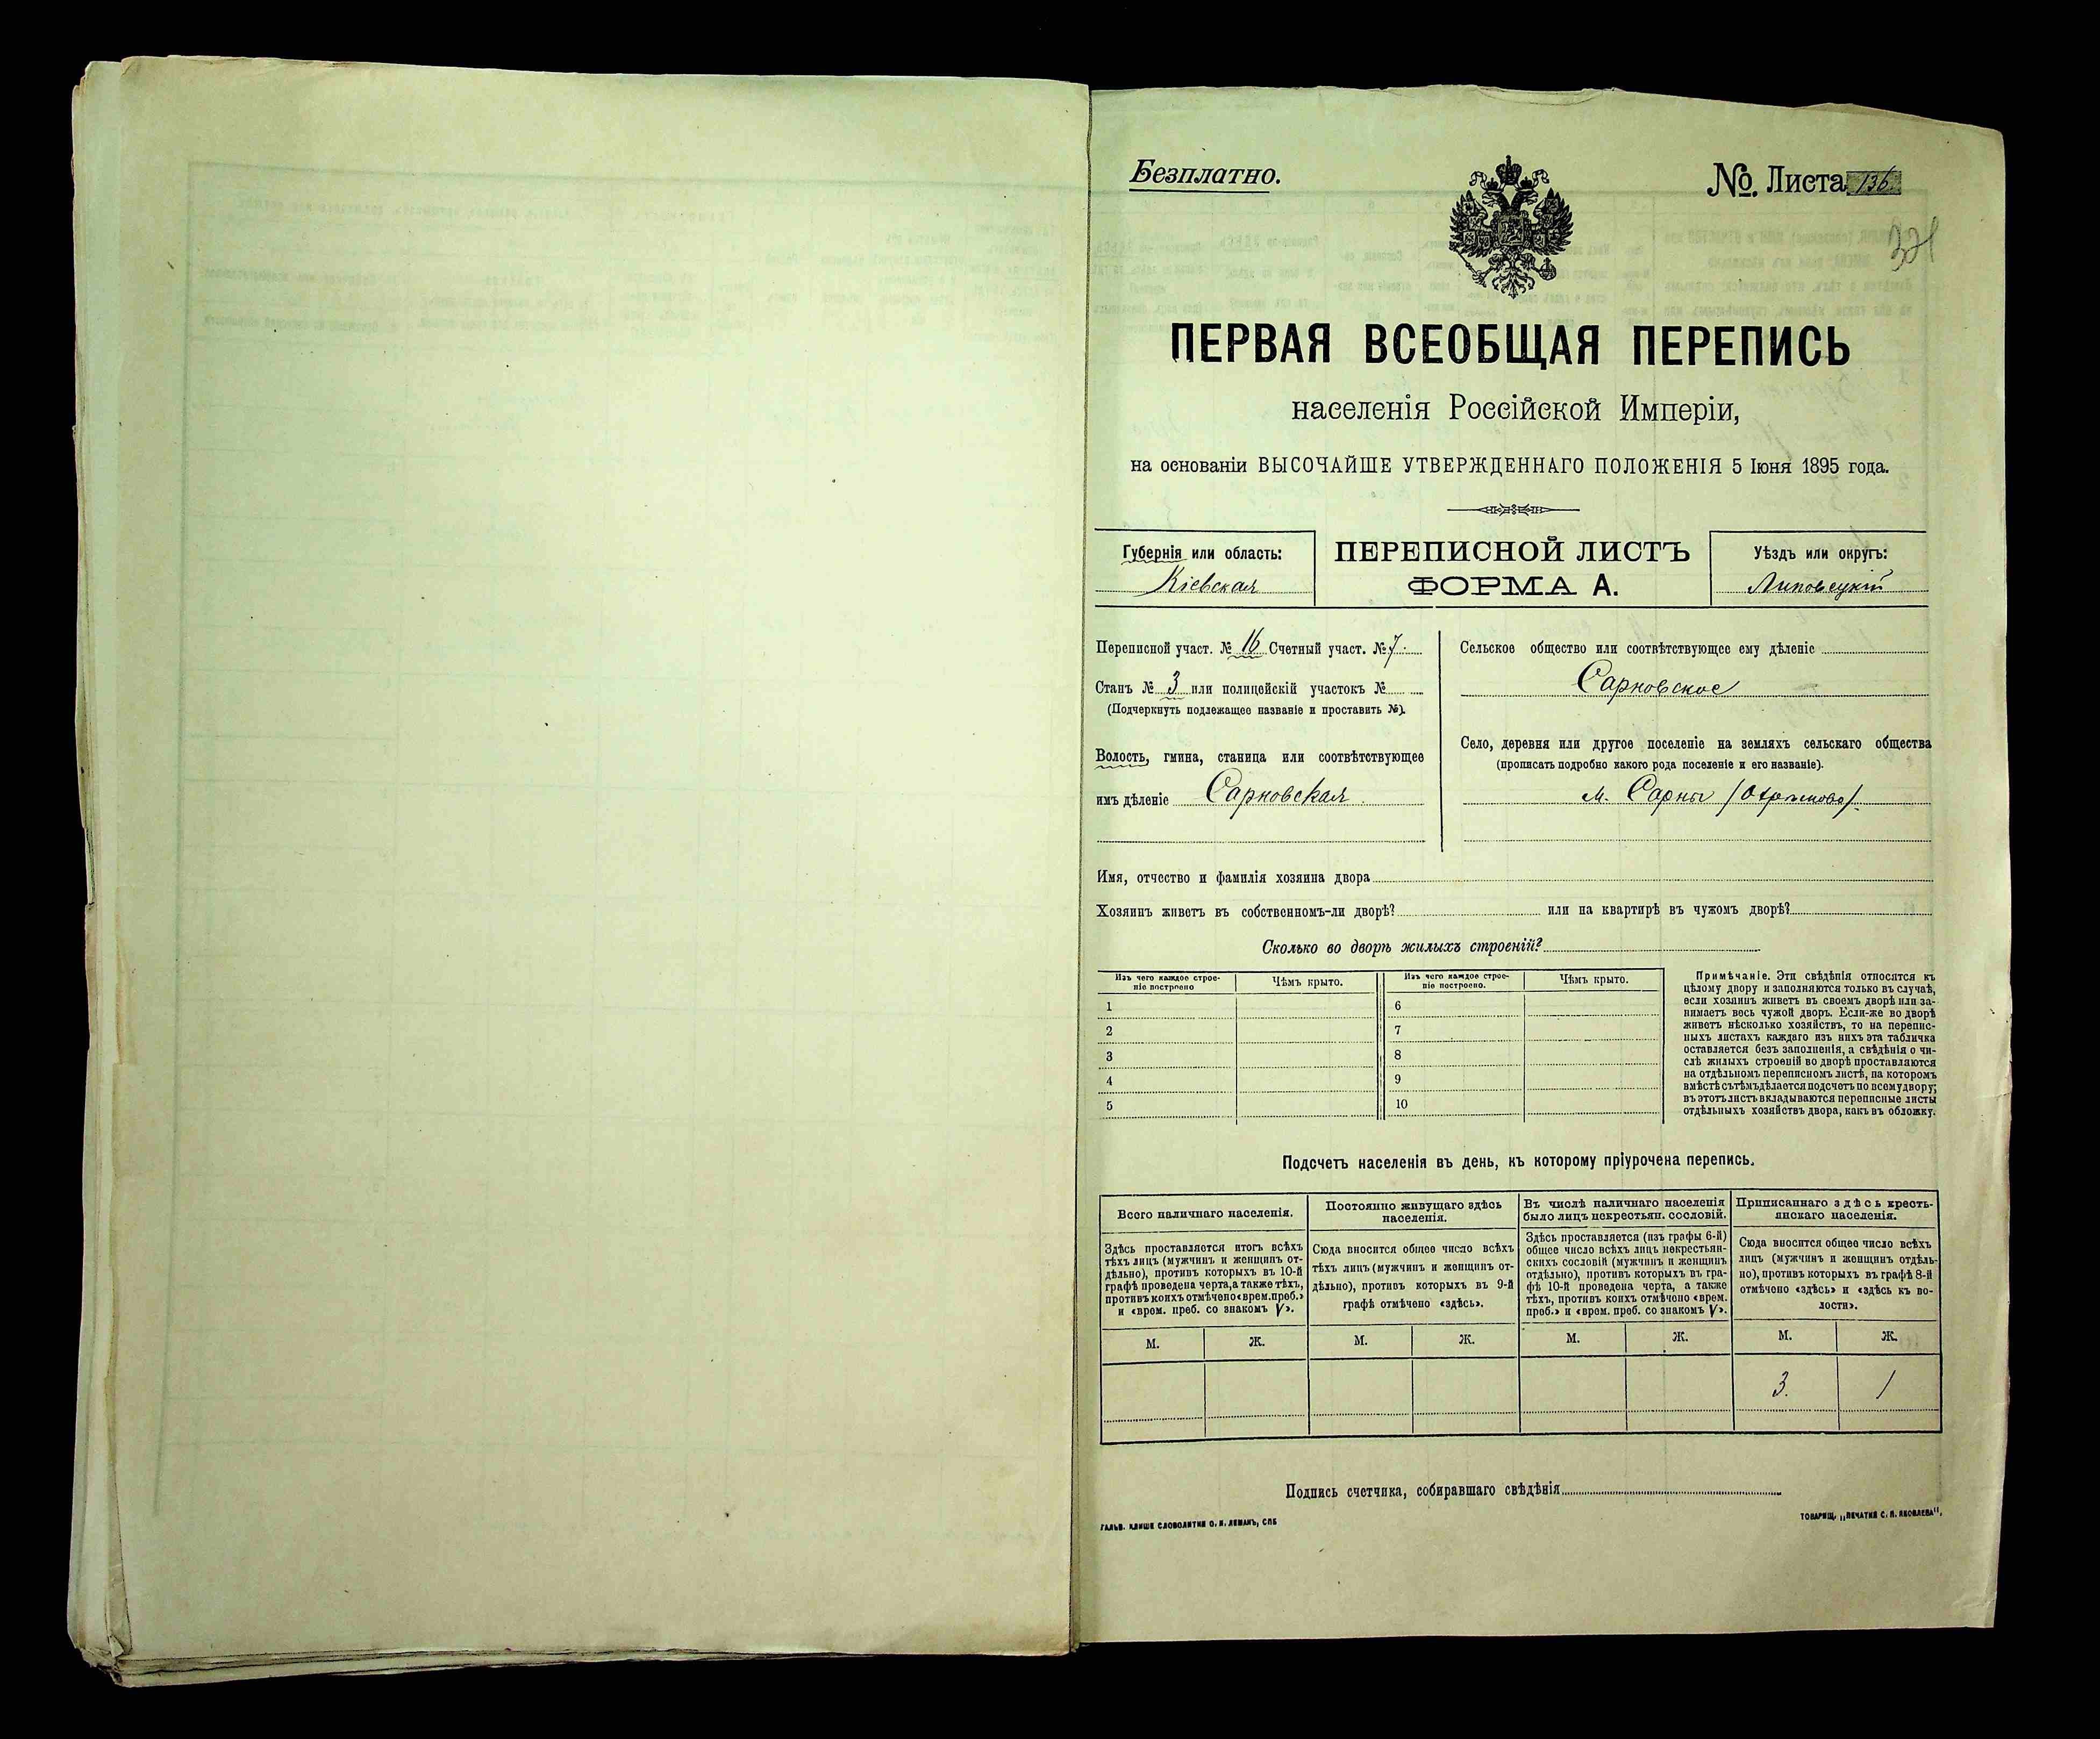 Безплатно.
№ Листа 136
321
ПЕРВАЯ ВСЕОБЩАЯ ПЕРЕПИСЬ
населенія Россійской Имперіи,
на основаніи ВЫСОЧАЙШЕ УТВЕРЖДЕННАГО ПОЛОЖЕНІЯ 5 Іюня 1895 года.
Губернія или область:
Кіевская
ПЕРЕПИСНОЙ ЛИСТЪ
ФОРМА А.
Уѣздъ или округъ:
Липовецкій
Переписной участ. № 16 Счетный участ. № 7.
Станъ № 3 или полицейскій участокъ №
(Подчеркнуть подлежащее названіе и проставить №).
Волость, гмина, станица или соотвѣтствующее
имъ дѣленіе Сарновская
Сельское общество или соотвѣтствующее ему дѣленіе
Сарновское
Село, деревня или другое поселеніе на земляхъ сельскаго общества
(прописать подробно какого рода поселеніе и его названіе).
м. Сарны
Имя, отчество и фамилія хозяина двора
Хозяинъ живетъ въ собственномъ-ли дворѣ? или на квартирѣ въ чужомъ дворѣ?
Сколько во дворѣ жилыхъ строеній?
Изъ чего каждое строе-
ніе построено
Чѣмъ крыто.
Изъ чего каждое строе-
ніе построено.
Чѣмъ крыто.
1 6
2 7
3 8
4 9
5 10
Примѣчаніе. Эти свѣдѣнія относятся къ
цѣлому двору и заполняются только въ случаѣ,
если хозяинъ живетъ въ своемъ дворѣ или за-
нимаетъ весь чужой дворъ. Если-же во дворѣ
живетъ нѣсколько хозяйствъ, то на перепис-
ныхъ листахъ каждаго изъ нихъ эта табличка
оставляется безъ заполненія, а свѣдѣнія о чи-
слѣ жилыхъ строеній во дворѣ проставляются
на отдѣльномъ переписномъ листѣ, на которомъ
вмѣстѣ съ тѣмъ дѣлается подсчетъ по всему двору;
въ этотъ листъ вкладываются переписные листы
отдѣльныхъ хозяйствъ двора, какъ въ обложку.
Подсчетъ населенія въ день, къ которому пріурочена перепись.
Всего наличнаго населенія.
Постоянно живущаго здѣсь
населенія.
Въ числѣ наличнаго населенія
было лицъ некрестьян. сословій.
Приписаннаго здѣсь кресть-
янскаго населенія.
Здѣсь проставляется итогъ всѣхъ
тѣхъ лицъ (мужчинъ и женщинъ от-
дѣльно), противъ которыхъ въ 10-й
графѣ проведена черта, а также тѣхъ,
противъ коихъ отмѣчено «врем. преб.»
и «врем. преб. со знакомъ V».
Сюда вносится общее число всѣхъ
тѣхъ лицъ (мужчинъ и женщинъ от-
дѣльно), противъ которыхъ въ 9-й
графѣ отмѣчено «здѣсь».
Здѣсь проставляется (изъ графы 6-й)
общее число всѣхъ лицъ некрестьян-
скихъ сословій (мужчинъ и женщинъ
отдѣльно), противъ которыхъ въ гра-
фѣ 10-й проведена черта, а также
тѣхъ, противъ коихъ отмѣчено «врем.
преб.» и «врем. преб. со знакомъ V».
Сюда вносится общее число всѣхъ
лицъ (мужчинъ и женщинъ отдѣль-
но), противъ которыхъ въ графѣ 8-й
отмѣчено «здѣсь» и «здѣсь къ во-
лости».
М. Ж. М. Ж. М. Ж. М. Ж.
3. 1
Подпись счетчика, собиравшаго свѣдѣнія
ГАЛЬВ. КЛИШЕ СЛОВОЛИТНИ О. И. ЛЕМАНЪ, СПБ
ТОВАРИЩ. „ПЕЧАТНЯ С. П. ЯКОВЛЕВА".